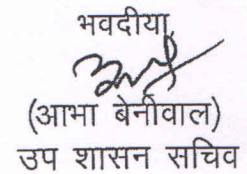 भवदीया,
(आभा बेनीवाल)
उप शासन सचिव